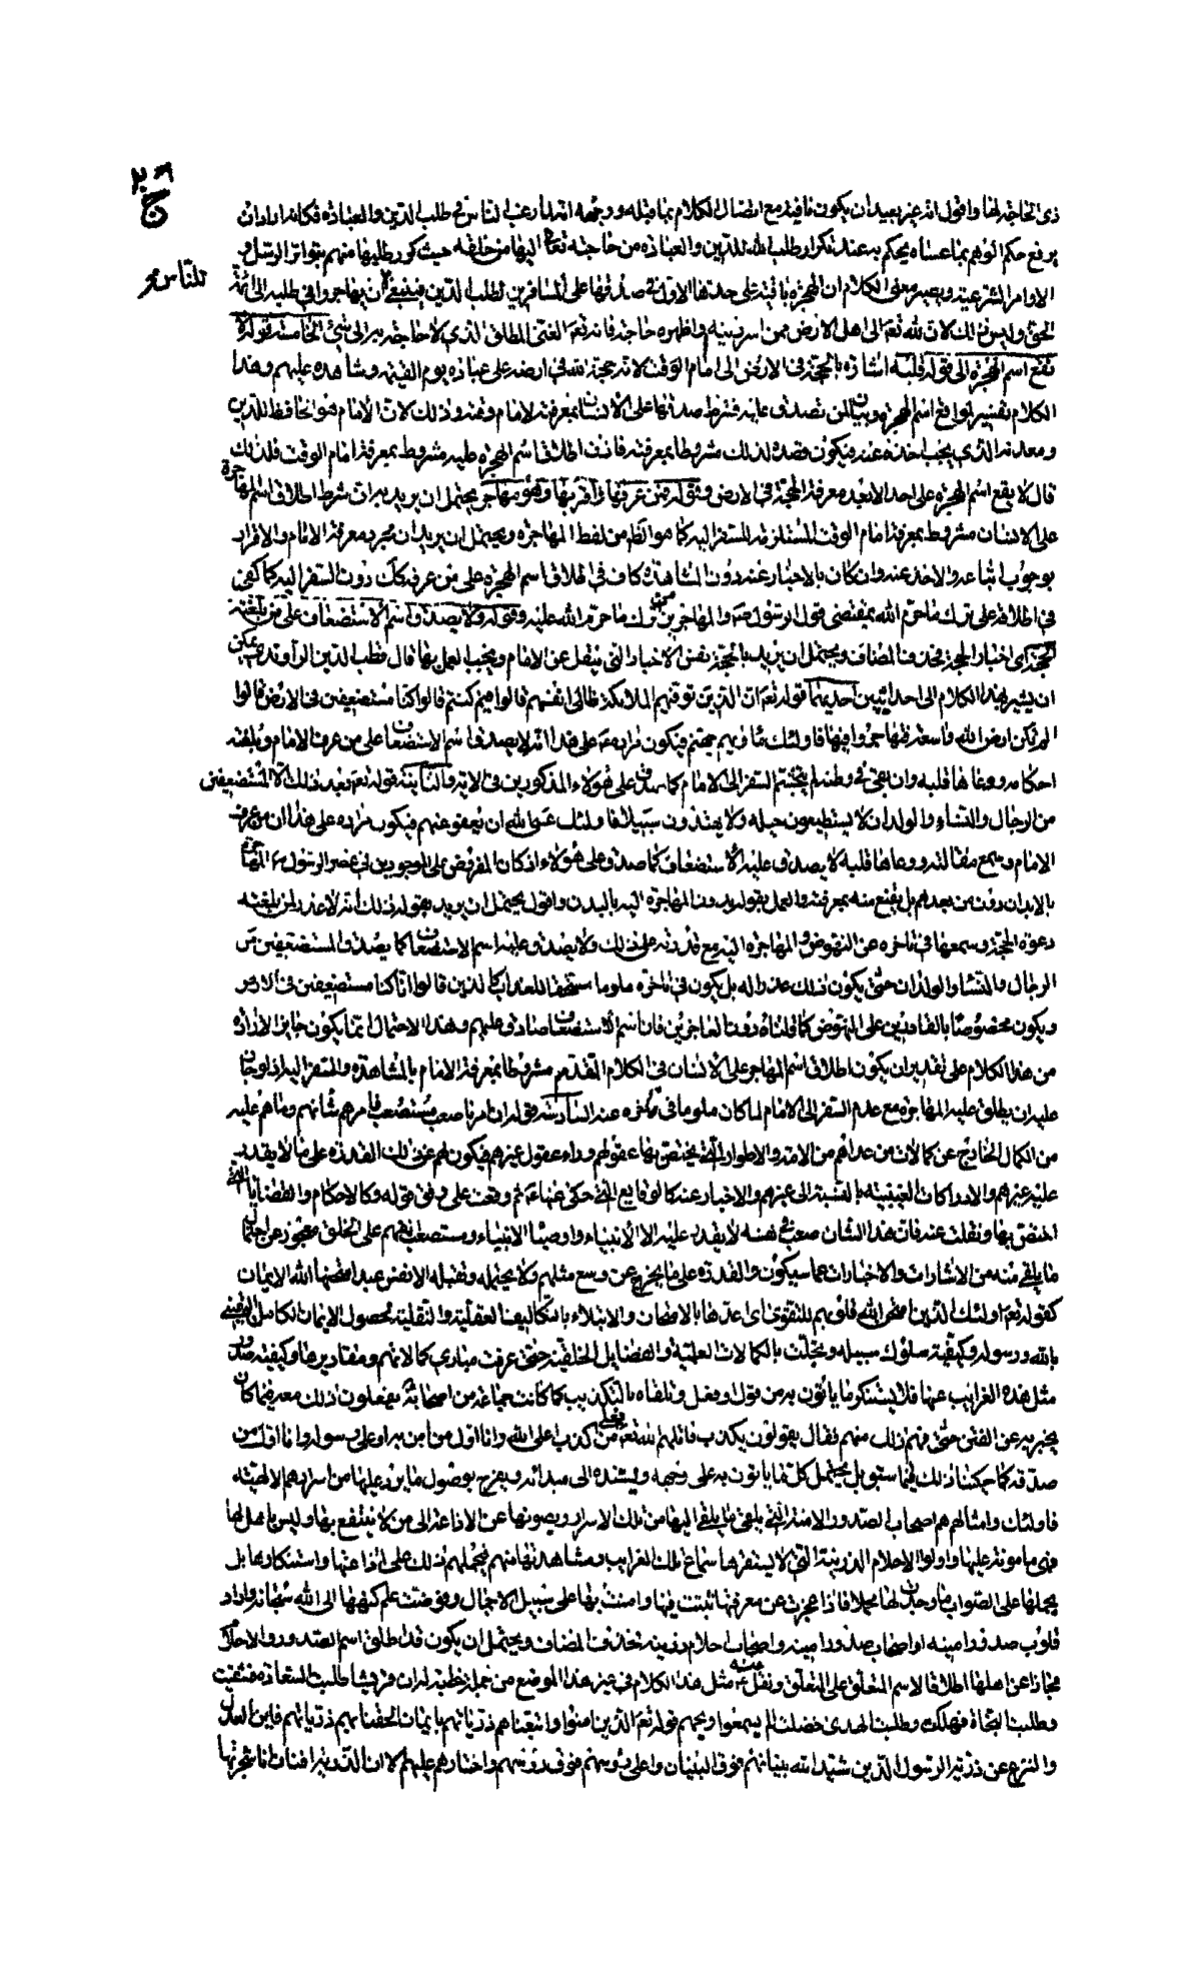 ذى الحاجة لها واقول انه غير بعيد ان يكون نافية مع اتصال الكلام بما قبله ووجهه انه لما رغب الناس فى طلب الدين والعبادة فكانه اراد ان
يرفع حكم الوهم بما عساه يحكم به عند تكرار طلب الله للدين والعبادة من حاجته تعالى اليها من خلقه حيث كرر طلبها منهم بتواتر الرسل و
للناس
الاوامر الشرعية ويصير معنى الكلام ان الهجرة باقية على حدها الاول فى صدقها على المسافرين لطلب الدين فينبغى ان يهاجروا فى طلبه الى ائمة
الحق وليس ذلك لان لله تعالى الى اهل الارض ممن اسر دينه او اظهره حاجة فانه تعالى الغنى المطلق الذى لا حاجة به الى شئ الخامسة قوله لا
يقع اسم الهجرة الى قوله قلبه اشارة بالحجة فى الارض الى امام الوقت لانه حجة الله فى ارضه على عباده يوم القيمة وشاهده عليهم وهذا
الكلام تفسير لمواقع اسم الهجرة وبيان لمن تصدق عليه فشرط صدقها على الانسان بمعرفة الامام وعنده ذلك لان الامام هو الحافظ للدين
ومعدنه الذى يجب اخذه عنه فيكون قصده لذلك مشروطا بمعرفته فاذن اطلاق اسم الهجرة عليه مشروط بمعرفة امام الوقت فلذلك
قال لا يقع اسم الهجرة على احد الا بعد معرفة الحجة فى الارض وقوله فمن عرفها واقر بها فهو مهاجر يحتمل ان يريد به ان شرط اطلاق اسم المهاجرة
على الانسان مشروط بمعرفة امام الوقت المستلزمة للسفر اليه كما هو الظاهر من لفظ المهاجرة ويحتمل ان يريد ان مجرد معرفة الامام والاقرار
بوجوب اتباعه والاخذ عنه وان كان بالاخبار عنه دون المشاهدة كاف فى اطلاق اسم الهجرة على من عرفه كك دون السفر اليه كما كفى
فى اطلاقه على ترك ما حرم الله بمقتضى قول الرسول صه والمهاجر من ترك ما حرم الله عليه وقوله ولا يصدق اسم الاستضعاف على من بلغته
الحجة اى اخبار الحجة فحذف المضاف ويحتمل ان يريد بالحجة نفس الاخبار التى ينقل عن الامام ويجب العمل بها قال قطب الدين الراوندى يمكن
ان يشير بهذا الكلام الى احد ايتين احديهما قوله تعالى ان الذين توفيهم الملائكة ظالمى انفسهم قالوا فيم كنتم قالوا كنا مستضعفين فى الارض قالوا
الم تكن ارض الله واسعة فتهاجروا فيها فاولئك مأويهم جهنم فيكون مراده على هذا انه لا يصدق اسم الاستضعاف على من عرف الامام وبلغته
احكامه ووعاها قلبه وان بقى فى وطنه لم يتجشم السفر الى الامام كما صدق على هؤلاء المذكورين فى الاية والثانية قوله تعالى بعد ذلك الا المستضعفين
من الرجال والنساء والولدان لا يستطيعون حيلة ولا يهتدون سبيلا فاولئك عسى الله ان يعفو عنهم فيكون مراده على هذا ان من عرف
الامام وسمع مقالته ووعاها قلبه لا يصدق عليه الاستضعاف كما صدق على هؤلاء اذ كان المفروض على الموجودين فى عصر الرسول المهاجرة
بالابدان دون من بعدهم بل يقنع منه بمعرفته والعمل بقوله بدون المهاجرة اليه بالبدن واقول يحتمل ان يريد بقوله ذلك انه لا عذر لمن بلغته
دعوة الحجة وسمعها فى تاخره عن النهوض والمهاجرة اليه مع قدرته على ذلك ولا يصدق عليه اسم الاستضعاف كما يصدق المستضعفين من
الرجال والنساء والولدان حتى يكون ذلك عذرا له بل يكون فى تاخره ملوما مستحقا للعذاب كالذين قالوا انا كنا مستضعفين فى الارض
ويكون مخصوصا بالقادرين على النهوض كما قلناه دون العاجزين فان اسم الاستضعاف صادق عليهم وهذا الاحتمال انما يكون جايز الارادة
من هذا الكلام على تقدير ان يكون اطلاق اسم المهاجر على الانسان فى الكلام المتقدم مشروطا بمعرفة الامام بالمشاهدة والسفر اليه اذ لو جاز
عليه ان يطلق عليه المهاجرة مع عدم السفر الى الامام لما كان ملوما فى تاخره عنه السادسة قوله ان امرنا صعب مستصعب فامرهم شانهم وما هم عليه
من الكمال الخارج عن كمالات من عداهم من الامة والاطوار التى يختص بها عقولهم وراء عقول غيرهم فيكون لهم عن ذلك القدرة على ما لا يقدر
عليه غيرهم والادراكات الغيبية بالنسبة الى غيرهم والاخبار عنه كالوقايع التى حكى عنها ووقعت على وفق قوله وكالاحكام والقضايا التى
اختص بها ونقلت عنه فان هذا الشان صعب فى نفسه لا يقدر عليه الا الانبياء واوصياء الانبياء ومستصعب فهمه على الخلق معجوز عن احتمال
ما يلقى منه من الاشارات والاخبارات عما سيكون والقدرة على ما يخرج عن وسع مثلهم ولا يحتمله ونقبله الا نفس عبد امتحنها الله للايمان
كقوله تعالى اولئك الذين امتحن الله قلوبهم للتقوى اى اعدها بالامتحان والابتلاء بالتكاليف العقلية والنقلية لحصول الايمان الكامل اليقينى
بالله ورسوله وكيفية سلوك سبيله وتحلت بالكمالات العلمية والفضايل الخلقية حتى عرفت مبادى كمالاتهم ومقاديرها وكيفية صدور
مثل هذه الغرايب عنها فلا يستنكر ما ياتون به من قول وفعل ولا تلقاه بالتكذيب كما كانت جماعة من اصحابه يفعلون ذلك معه فيما كان
يخبر به عن الفتن حتى فهم ذلك منهم فقال يقولون يكذب قاتلهم الله تعالى فعلى من اكذب اعلى الله وانا اول من امن به ام على رسوله وانا اول من
صدقه كما حكينا ذلك فيما سبق بل يحتمل كل ما ياتون به على وجهه ويسنده الى مبدائه ويفرح بوصول ما يرد عليها من اسرارهم الالهية
فاولئك وامثالهم هم اصحاب الصدور الامينة التى يلقى ما يلقى اليها من تلك الاسرار ويصونها عن الاذاعة الى من لا ينتفع بها وليس باهل لها
فهى مامونة عليها واولوا الاحلام الرزينة التى لا يستفزها سماع تلك الغرايب ومشاهدتها منهم فيحملهم ذلك على اذاعتها واستنكارها بل
يحملها على الصواب ما وجدت لها محملا فاذا عجزت عن معرفتها ثبتت فيها وامنت بها على سبيل الاجمال وفوضت علم كنهها الى الله سبحانه واراد
قلوب صدور امينة او اصحاب صدور امينة واصحاب احلام رزينة فحذف المضاف ويحتمل ان يكون قد اطلق اسم الصدور والاحلام
مجازا عن اهلها اطلاقا لاسم المتعلق على المتعلق ونقل عنه مثل هذا الكلام فى غير هذا الموضع من جملة خطبة له ان قريشا طلبت السعادة فشقيت
وطلبت النجاة فهلكت وطلبت الهدى فضلت الم يسمعوا ويحهم قوله تعالى الذين امنوا واتبعتهم ذريتهم بايمان الحقنا بهم ذرياتهم فاين العدل
والنزع عن ذرية الرسول الذين شيد الله بنيانهم فوق البنيان واعلى رؤسهم فوق رؤسهم واختارهم عليهم الا ان الذرية افنان انا شجرتها